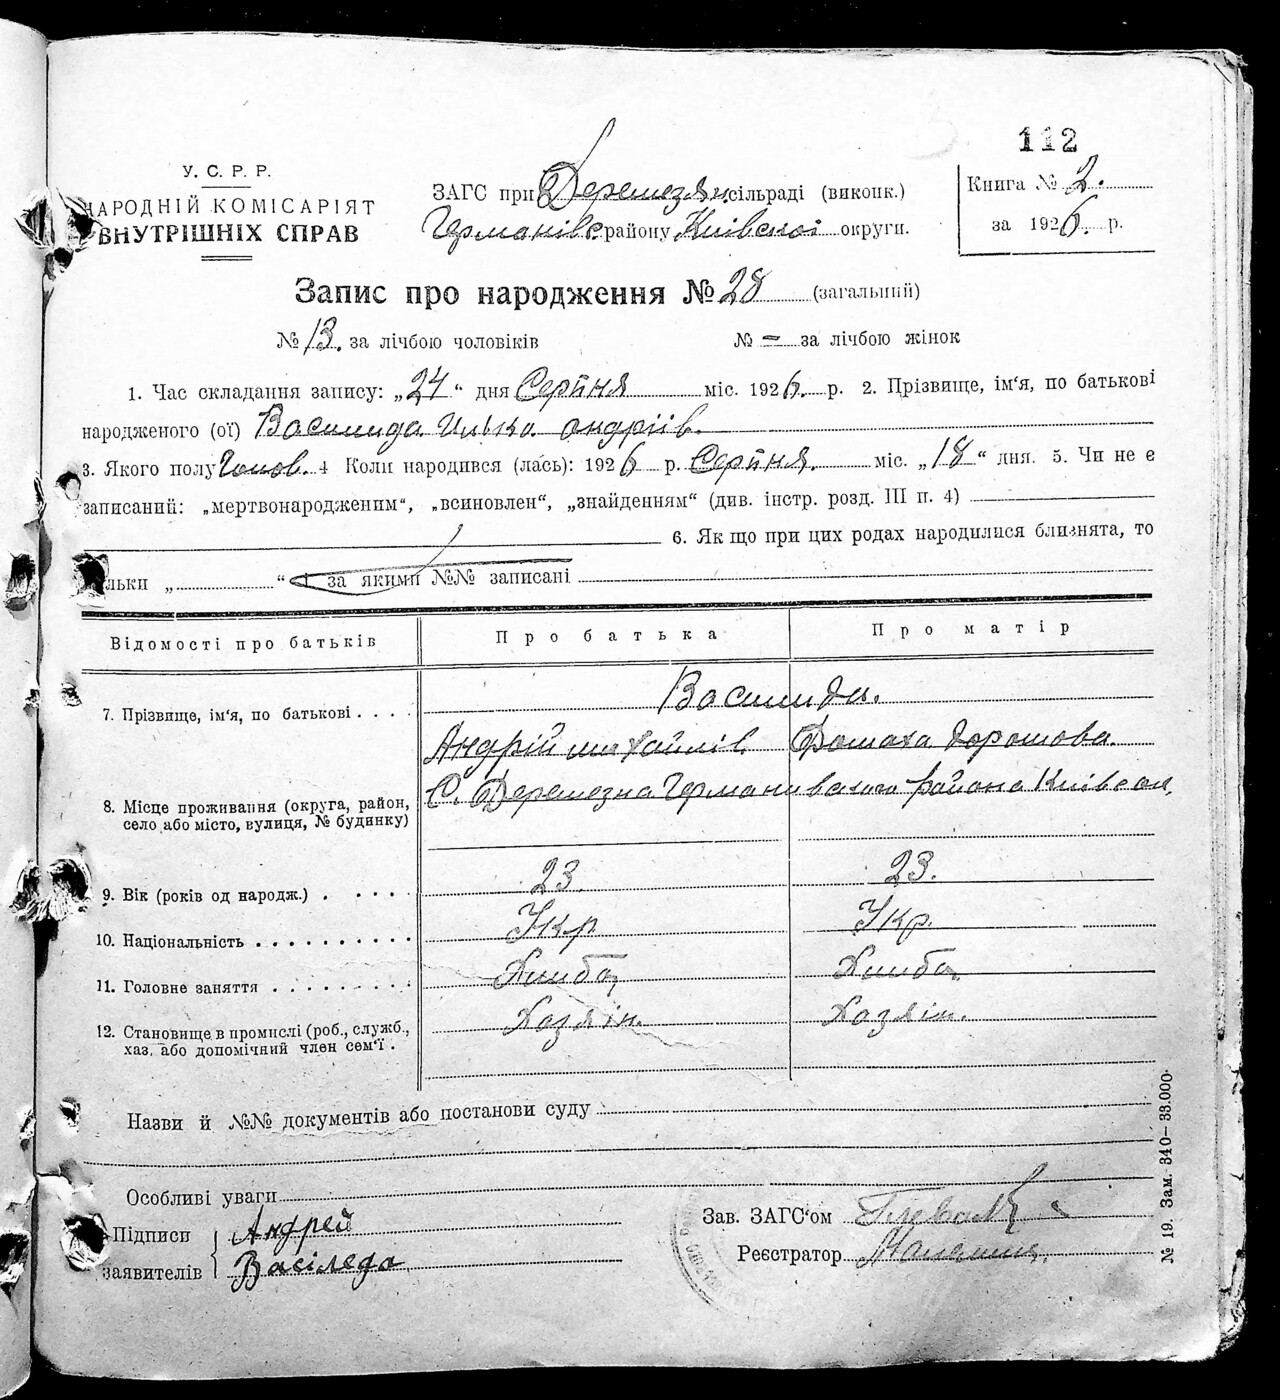 112
У. С. Р. Р.
НАРОДНІЙ КОМІСАРІЯТ
ВНУТРІШНІХ СПРАВ
ЗАГС при Деремезян. сільраді (виконк.)
Германівс. району Київської округи.
Книга № 2.
за 1926. р.
Запис про народження № 28 (загальний)
№ 13. за лічбою чоловіків № – за лічбою жінок
1. Час складання запису: „24“ дня Серпня міс. 1926. р. 2. Прізвище, ім‘я, по батькові
народженого (ої) Василида Илька андріїв.
3. Якого полу Чолов. 4 Коли народився (лась): 1926 р. Серпня. міс. „18“ дня. 5. Чи не є
записаний: „мертвонародженим“, „всиновлен“, „знайденням“ (див. інстр. розд. III п. 4)
6. Як що при цих родах народилися близнята, то
льки „ “ за якими №№ записані
Відомості про батьків Про батька Про матір
7. Прізвище, ім‘я, по батькові . . . . Василиди.
Андрій михайлів. Домаха дорошова.
8. Місце проживання (округа, район, С. Деремезна Германивского района Київськ.
село або місто, вулиця, № будинку)
9. Вік (років од народж.) . . . . . 23 23.
10. Національність . . . . . . . . . . Укр Укр.
11. Головне заняття . . . . . . . . . Хлиб Хлиб
12. Становище в промислі (роб., служб., Хозяїн. Хозяїн.
хаз. або допомічний член сем‘ї .
Назви й №№ документів або постанови суду
Особливі уваги
Підписи Андрей
заявителів Васіледа
Зав. ЗАГС‘ом
Реєстратор
№ 19. Зам. 340–33.000.